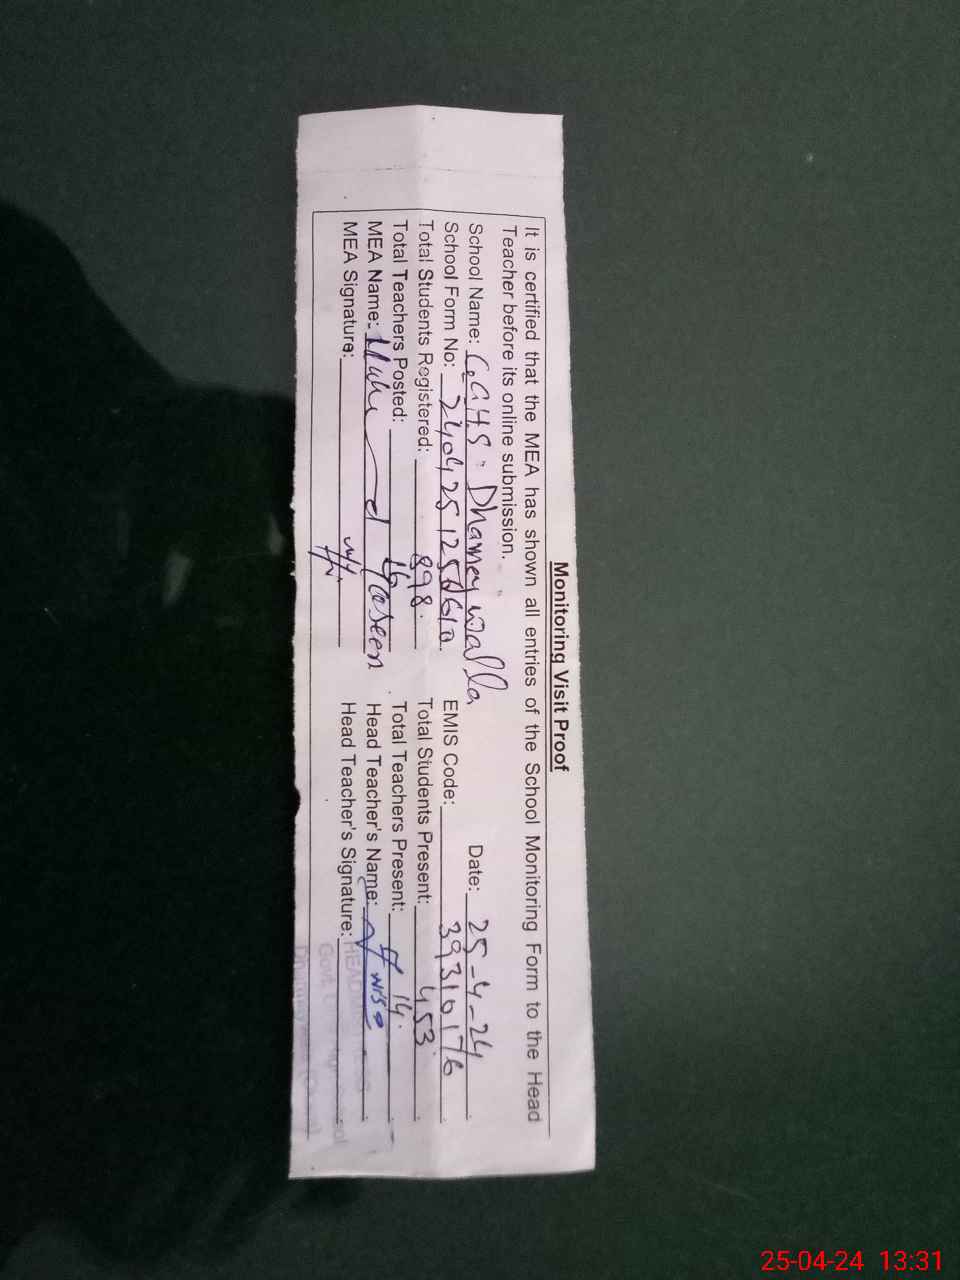 Monitoring Visit Proof
It is certified that the MEA has shown all entries of the School Monitoring Form to the Head
Teacher before its online submission.
School Name: G.G.H.S. Dhamey walla Date: 25-4-24
School Form No: EMIS Code: 39310176
Total Students Registered: 898. Total Students Present: 453
Total Teachers Posted: 16 Total Teachers Present: 14.
MEA Name: Yaseen Head Teacher's Name:
MEA Signature: Head Teacher's Signature:
25-04-24 13:31